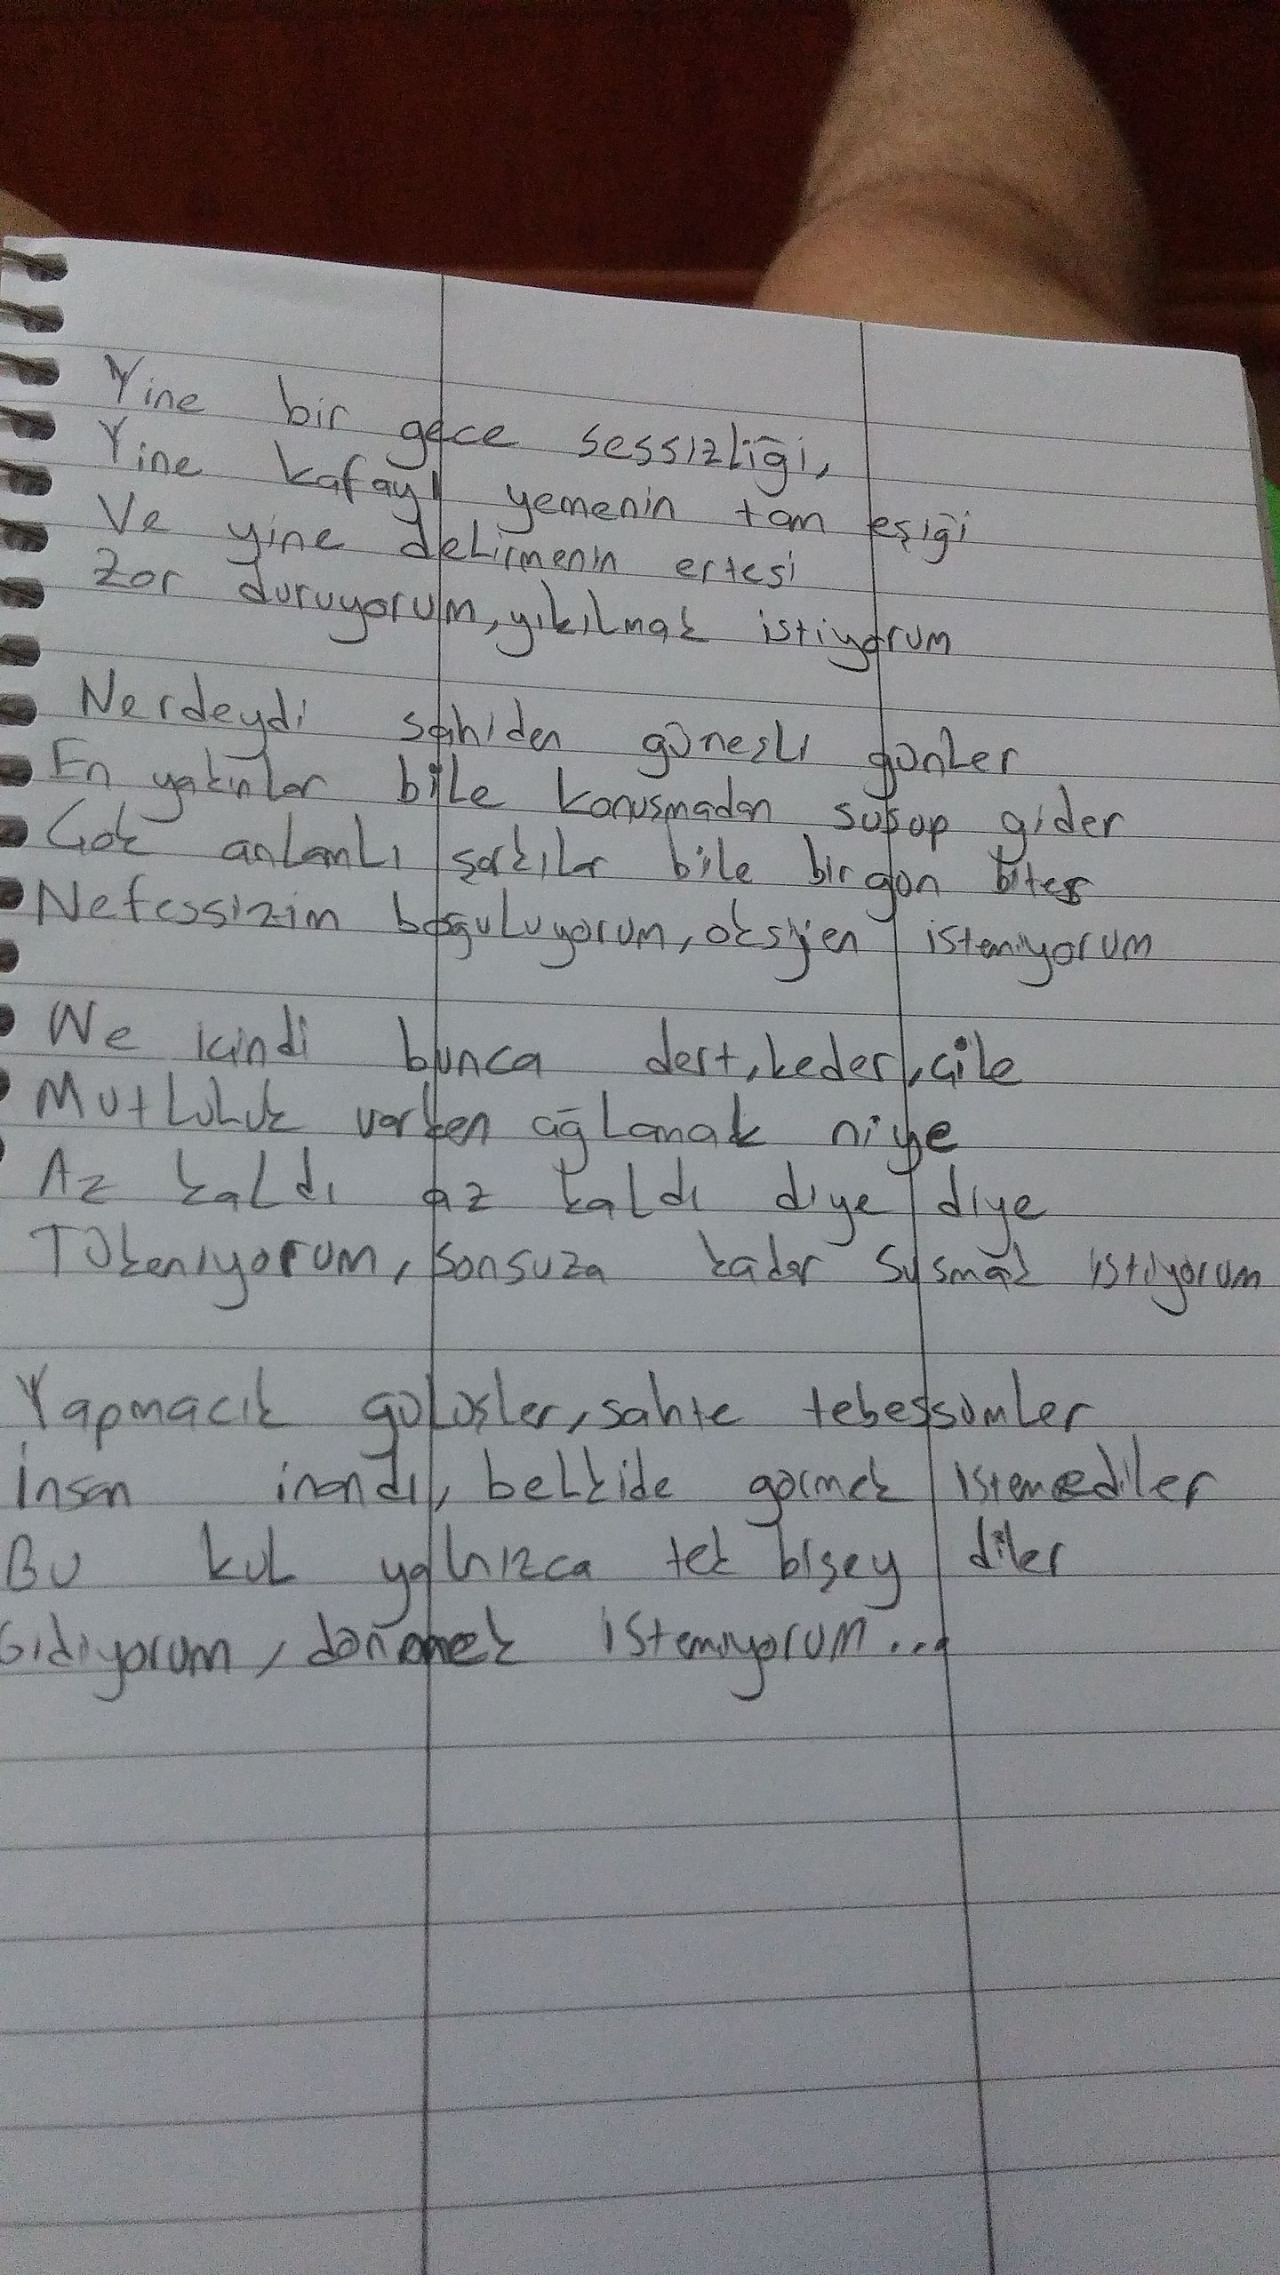 Yine bir gece sessizliği,
Yine kafayı yemenin tam eşiği
Ve yine delirmenin ertesi
Zor duruyorum, yıkılmak istiyorum
Nerdeydi sahiden güneşli günler
En yakınlar bile konuşmadan susup gider
Çok anlamlı şarkılar bile bir gün biter
Nefessizim boğuluyorum, oksijen istemiyorum
We kindi bunca dert, keder, çile
Mutluluk varken ağlamak niye
Az kaldı az kaldı diye diye
Tükeniyorum, sonsuza kadar susmak istiyorum
Yapmacık gülüşler, sahte tebessümler
İnsan inandı, belkide görmek istemediler
Bu kul yalnızca tek bişey diler
Gidiyorum, dönmek istemiyorum...